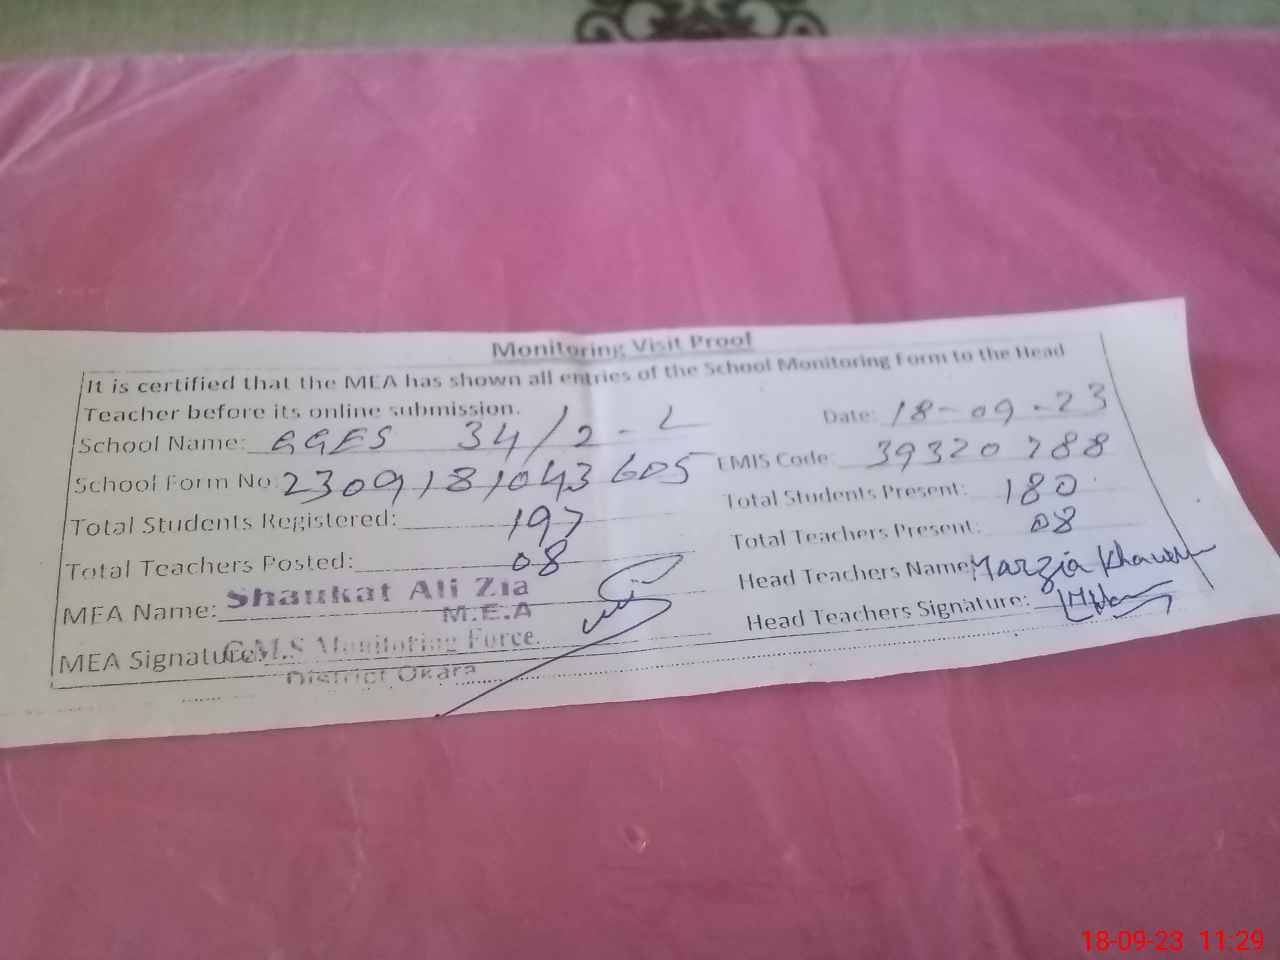 Monitoring Visit Proof
It is certified that the MEA has shown all entries of the School Monitoring Form to the Head
Teacher before its online submission.
Date: 18-09-23
School Name: GGES 34/2-L
EMIS Code: 39320788
School Form No: 2309181043605
Total Students Present: 180
Total Students Registered: 197
Total Teachers Present: 08
Total Teachers Posted: 08
Head Teachers Name: Marzia
MEA Name: Shaukat Ali Zia
M.E.A
Head Teachers Signature:
MEA Signature: C.M.S Monitoring Force.
District Okara
18-09-23 11:29